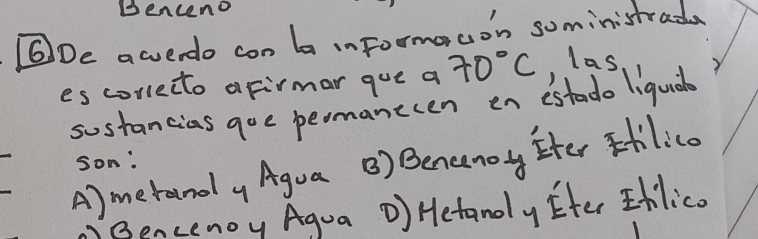 Benceno
6 De acuerdo con la información suministrada
es correcto afirmar que a 70°C, las
sustancias que permanecen en estado líquido
son:
A) metanol y Agua B) Benceno y Éter Etílico
) Benceno y Agua D) Metanol y Éter Etílico